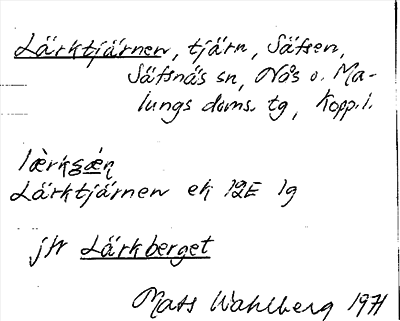 Lärktjärnen, tjärn, Säfsen,
Säfsnäs sn, Nås o. Ma-
lungs doms. tg, Kopp. l.
Lärktjärnen ek 12E 1g
jfr Lärkberget
Mats Wahlberg 1971